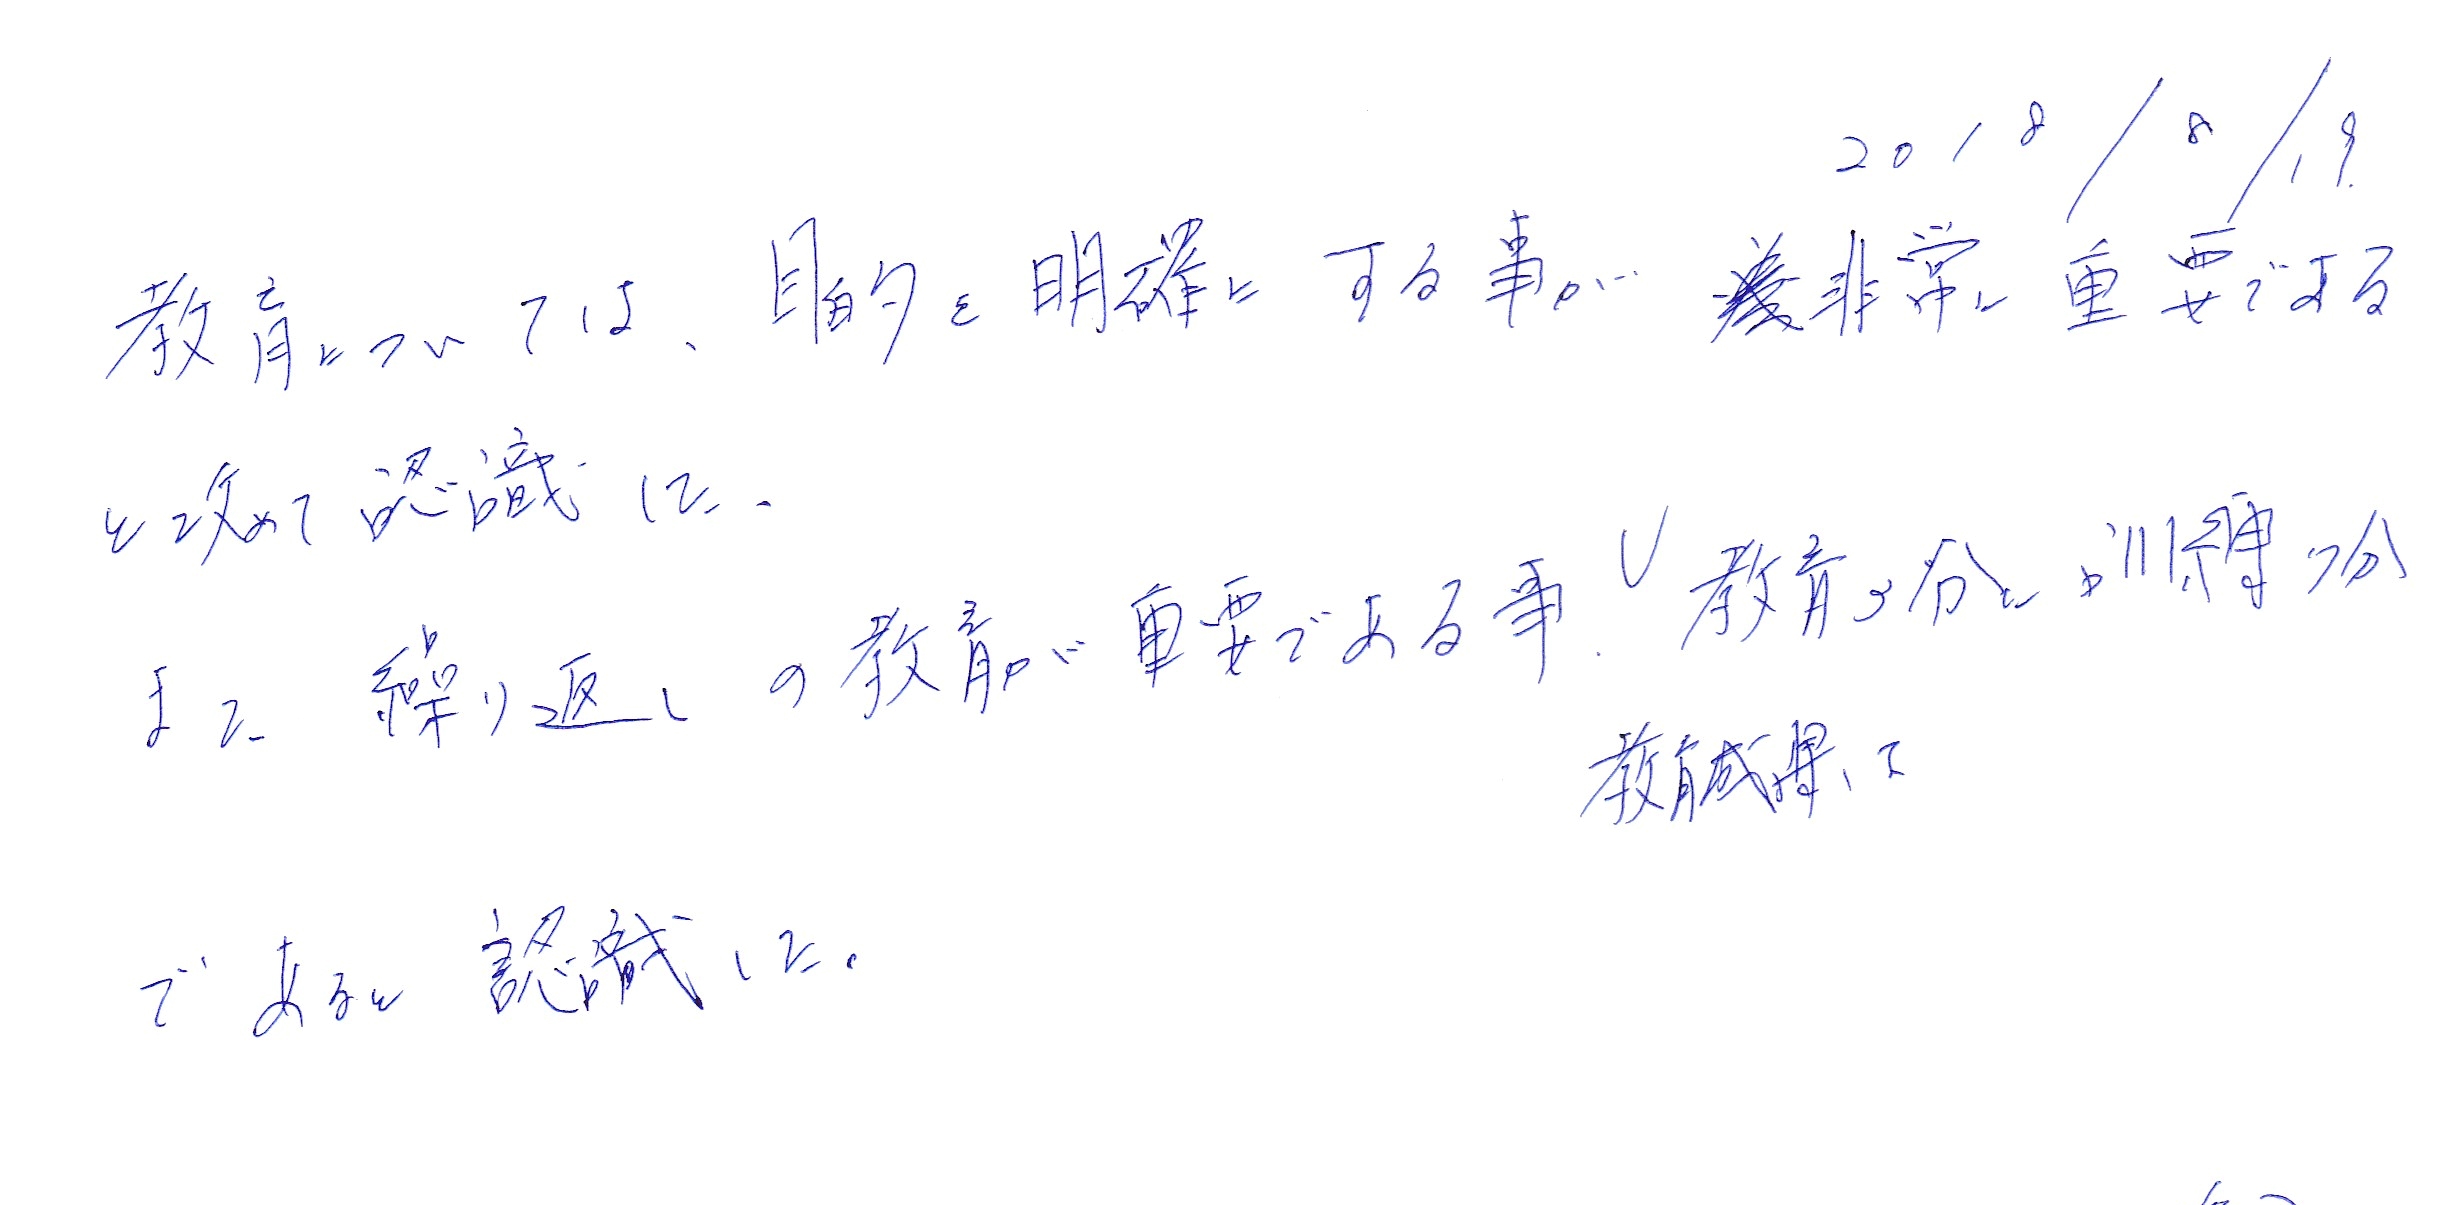 2018/8/19
教育については、目的を明確にする事が 非常に重要である
と改めて認識した.
また 繰り返しの教育が重要である事. 教育3分に訓練7分
教育
であると認識した。